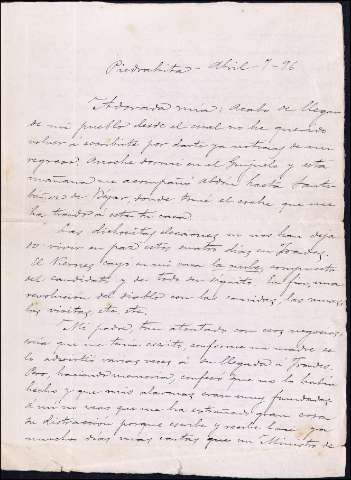 Piedrahita - Abril - 7 - 96
Adorada mia: Acabo de llegar
de mi pueblo desde el cual no he querido
volver a escribirte por darte ya noticias de mi
regreso. Anoche dormí en el Guijuelo y esta
mañana me acompañó Abdón hasta Santi-
bañez de Béjar, donde tomé el coche que me
ha traido a esta tu casa.
Las dichosas elecciones no nos han deja-
do vivir en paz estos cuatro dias en Frades.
El Viernes cayó en mi casa la nube, compuesta
del candidato y de todo su séquito. En fin, una
revolución del diablo con las comidas, las camas,
las visitas, etc. etc.
Mi padre, tan atontado con esos negocios,
creia que me tenia escrito, conforme mi madre se
lo advirtió varias veces á mi llegada á Frades.
Pero, haciendo memoria, confesó que no lo habia
hecho y que mis alarmas eran muy fundadas.
A mi no creas que me ha extrañado gran cosa
su distracción porque escribe y recibe hace ya
muchos dias mas cartas que un Ministro de